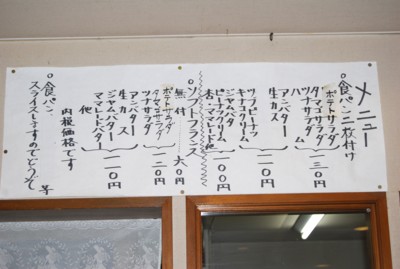 メニュー
○食パン二枚付け
ポテトサラダ
タマゴサラダ
ツナサラダ
ハム
一三〇円
アンバター
生カス
一一〇円
ツブピーナツ
キナコクリーム
ジャムバタ
ピーナツクリーム
杏・マーマレード他
一〇〇円
○ソフトフランス
無付 六〇円
ポテトサラダ
タマゴサラダ
ツナサラダ
一二〇円
アンバター
生カス
ジャムバター
ママレードバター
他
一一〇円
内税価格です
○食パン、
スライスしますのでどうぞ